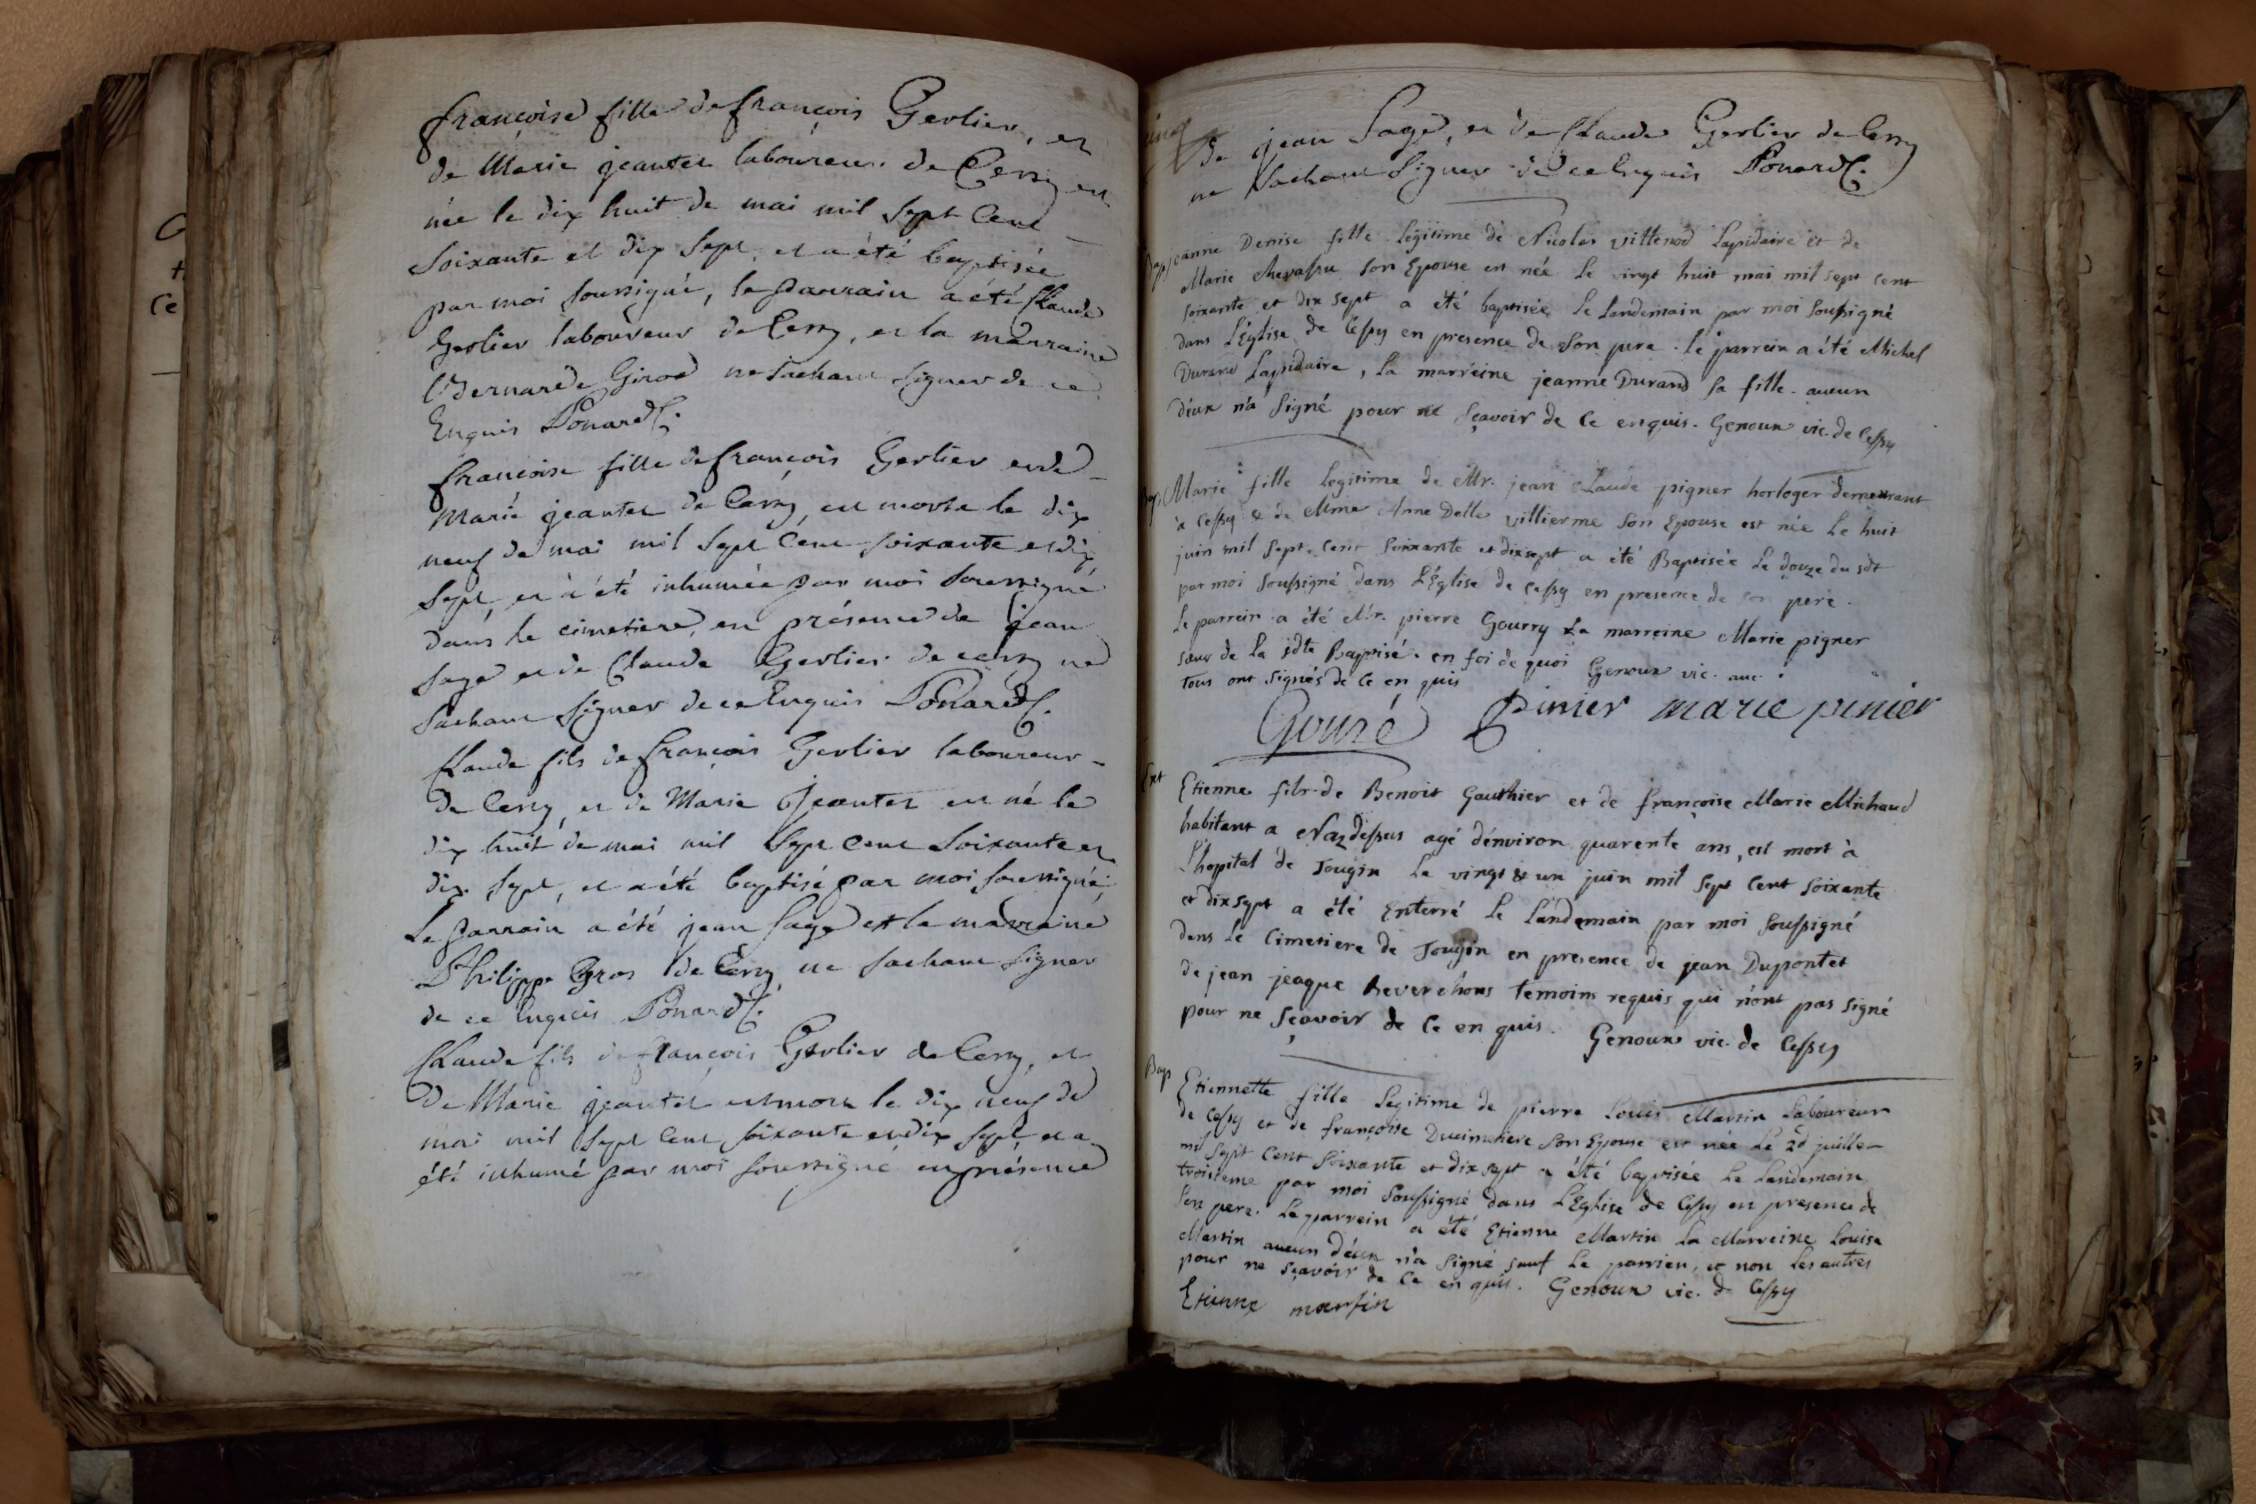 françoise fille de françois Gerlier, et
de Marie jeantet laboureur de Cessy est
née le dix huit de mai mil sept Cent
Soixante et dix sept, et a été baptisée
par moi soussigné, le parrain a été Claude
Gerlier laboureur de Cessy, et la marraine
Bernarde Girod ne sachant signer de ce
Enquis Ponard C.
françoise fille de françois Gerlier et de
Marie jeantet de Cessy, est morte le dix
neuf de mai mil sept Cent soixante et dix
sept, et a été inhumée par moi soussigné
dans le cimetiere, en présence de jean
Sage et de Claude Gerlier de cessy ne
sachant signer de ce Enquis Ponard C.
Claude fils de françois Gerlier laboureur
de Cessy, et de Marie Jeantet est né le
dix huit de mai mil sept cent Soixante et
dix sept, et a été baptisé par moi soussigné,
Le parrain a été jean Sage et la marraine
Philippe Gros de Cessy, ne sachant signer
de ce enquis Ponard C.
Claude fils de françois Gerlier de Cessy, et
De Marie jeantet est mort le dix neuf de
mai mil sept Cent soixante et dix sept, et a
été inhumé par moi soussigné en présence
de jean Sage, et de Claude Gerlier de Cessy
ne sachant Signer de ce Enquis Ponard C.
Bap jeanne Denise fille légitime de Nicolas villenod Lapidaire et de
Marie chevassu son Epouse est née Le vingt huit mai mil sept cent
soixante et dix sept a été baptisée Le Landemain par moi soussigné
dans L'Eglise de Cessy en presence de son pere. le parrein a été Michel
Durand Lapidaire, La marreine jeanne Durand sa fille. aucun
d'eux n'a signé pour ne sçavoir de Ce enquis. Genoux vic. de Cessy
Bap Marie fille legitime de Mr. jean Claude pigner horloger demeurant
a Cessy & de Mme Anne Delle villierme son Epouse est née Le huit
juin mil sept Cent soixante et dixsept a été Baptisée Le douze du sdt
par moi soussigné dans L'Eglise de Cessy en presence de son pere.
Le parrein a été Mr. pierre Gourry La marreine Marie pigner
sœur de la sdte Baptisé. en foi de quoi Genoux vic.
tous ont signés de Ce en quis
Gouré Pinier marie pinier
Etienne fils de Benoit Gauthier et de françoise Marie Michaud
habitant a Nazdessus agé d'environ quarente ans, est mort à
L'hopital de Tougin Le vingt & un juin mil sept Cent soixante
et dixsept a été Enterré Le Landemain par moi soussigné
dans Le Cimetiere de Tougin en presence de jean Dupontet
de jean jeaque Reverchons temoins requis qui n'ont pas signé
pour ne sçavoir de Ce en quis. Genoux vic. de Cessy
Bap Etiennette fille Legitime de pierre Louis Martin Laboureur
de Cessy et de françoise Ducimetiere son Epouse est née Le 2d juillet
mil sept Cent soixante et dixsept a été baptisée Le Landemain
troisieme par moi soussigné dans L'Eglise de Cessy en presence de
son pere. Le parrein a été Etienne Martin La Marreine Louise
Martin aucun d'eux n'a signé sauf Le parrien, et non Les autres
pour ne sçavoir de Ce en quis. Genoux vic. de Cessy
Etienne martin